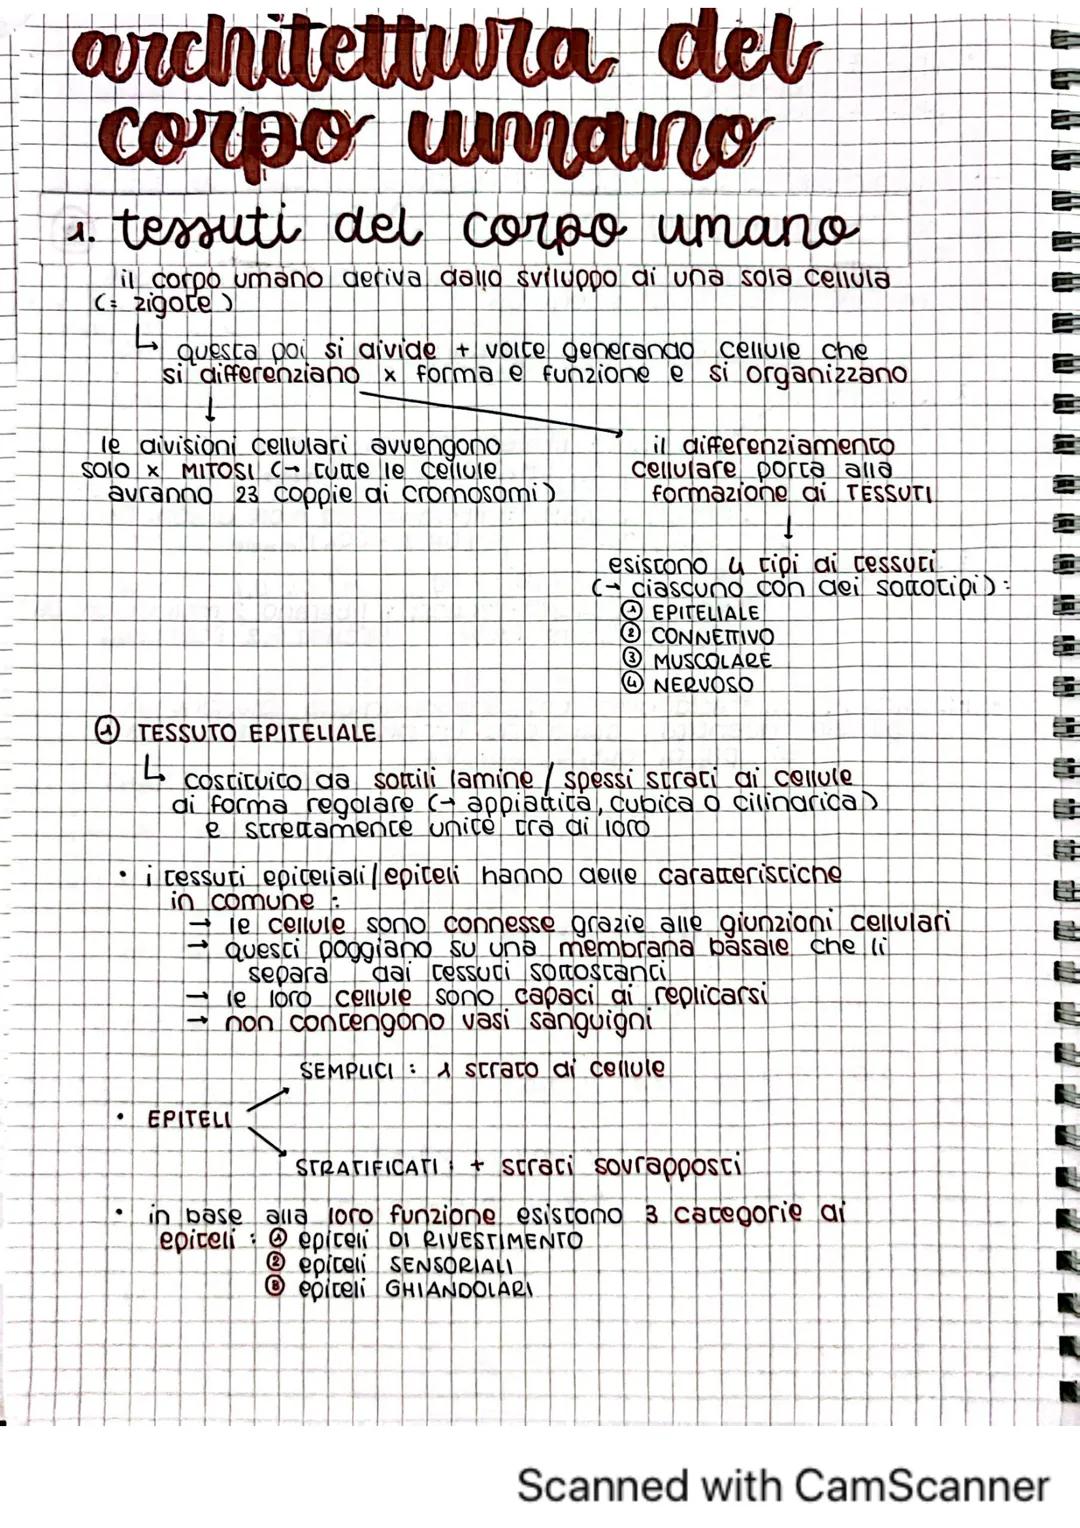 architettura del
corpo umano
1. tessuti del corpo umano
il corpo umano deriva dallo sviluppo di una sola cellula
(= zigote)
↳ questa poi si divide + volte generando cellule che
si differenziano x forma e funzione e si organizzano
le divisioni cellulari avvengono
solo x MITOSI (→ tutte le cellule
avranno 23 coppie di cromosomi)
il differenziamento
cellulare porta alla
formazione di TESSUTI
esistono 4 tipi di tessuti
(→ ciascuno con dei sottotipi):
① EPITELIALE
② CONNETTIVO
③ MUSCOLARE
④ NERVOSO
① TESSUTO EPITELIALE
↳ costituito da sottili lamine / spessi strati di cellule
di forma regolare (→ appiattita, cubica o cilindrica)
e strettamente unite tra di loro
• i tessuti epiteliali/epiteli hanno delle caratteristiche
in comune :
→ le cellule sono connesse grazie alle giunzioni cellulari
→ questi poggiano su una membrana basale che li
separa dai tessuti sottostanti
→ le loro cellule sono capaci di replicarsi
→ non contengono vasi sanguigni
SEMPLICI : 1 strato di cellule
• EPITELI
STRATIFICATI : + strati sovrapposti
• in base alla loro funzione esistono 3 categorie di
epiteli : ① epiteli DI RIVESTIMENTO
② epiteli SENSORIALI
③ epiteli GHIANDOLARI
Scanned with CamScanner